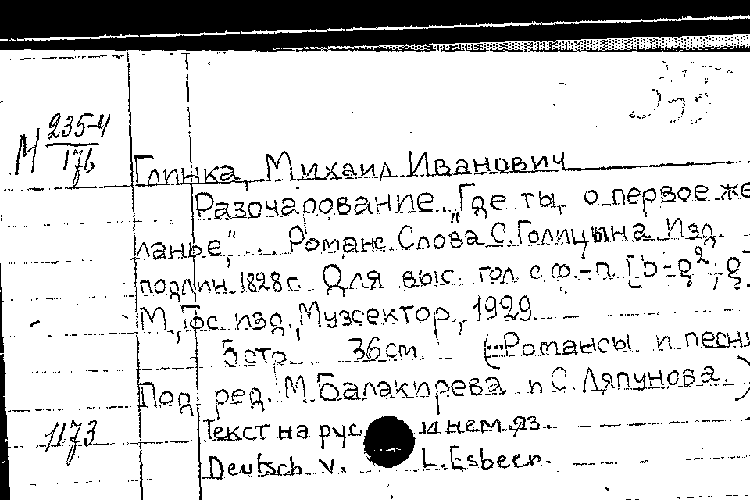 М 235-4
176
Глинка, Михаил Иванович
Разочарование. „Где ты, о первое же
ланье", .. Романс. Слова С. Голицына. Изд.
подлин. 1828 г. Для выс. гол. с ф.-п. [b-g²; g
М., Гос. изд., Музсектор, 1929
5 стр. 36 см (Романсы и песни
Под ред. М. Балакирева и С. Ляпунова.)
1173
Текст на рус. и нем. яз.
Deutsch v. L. Esbeer.